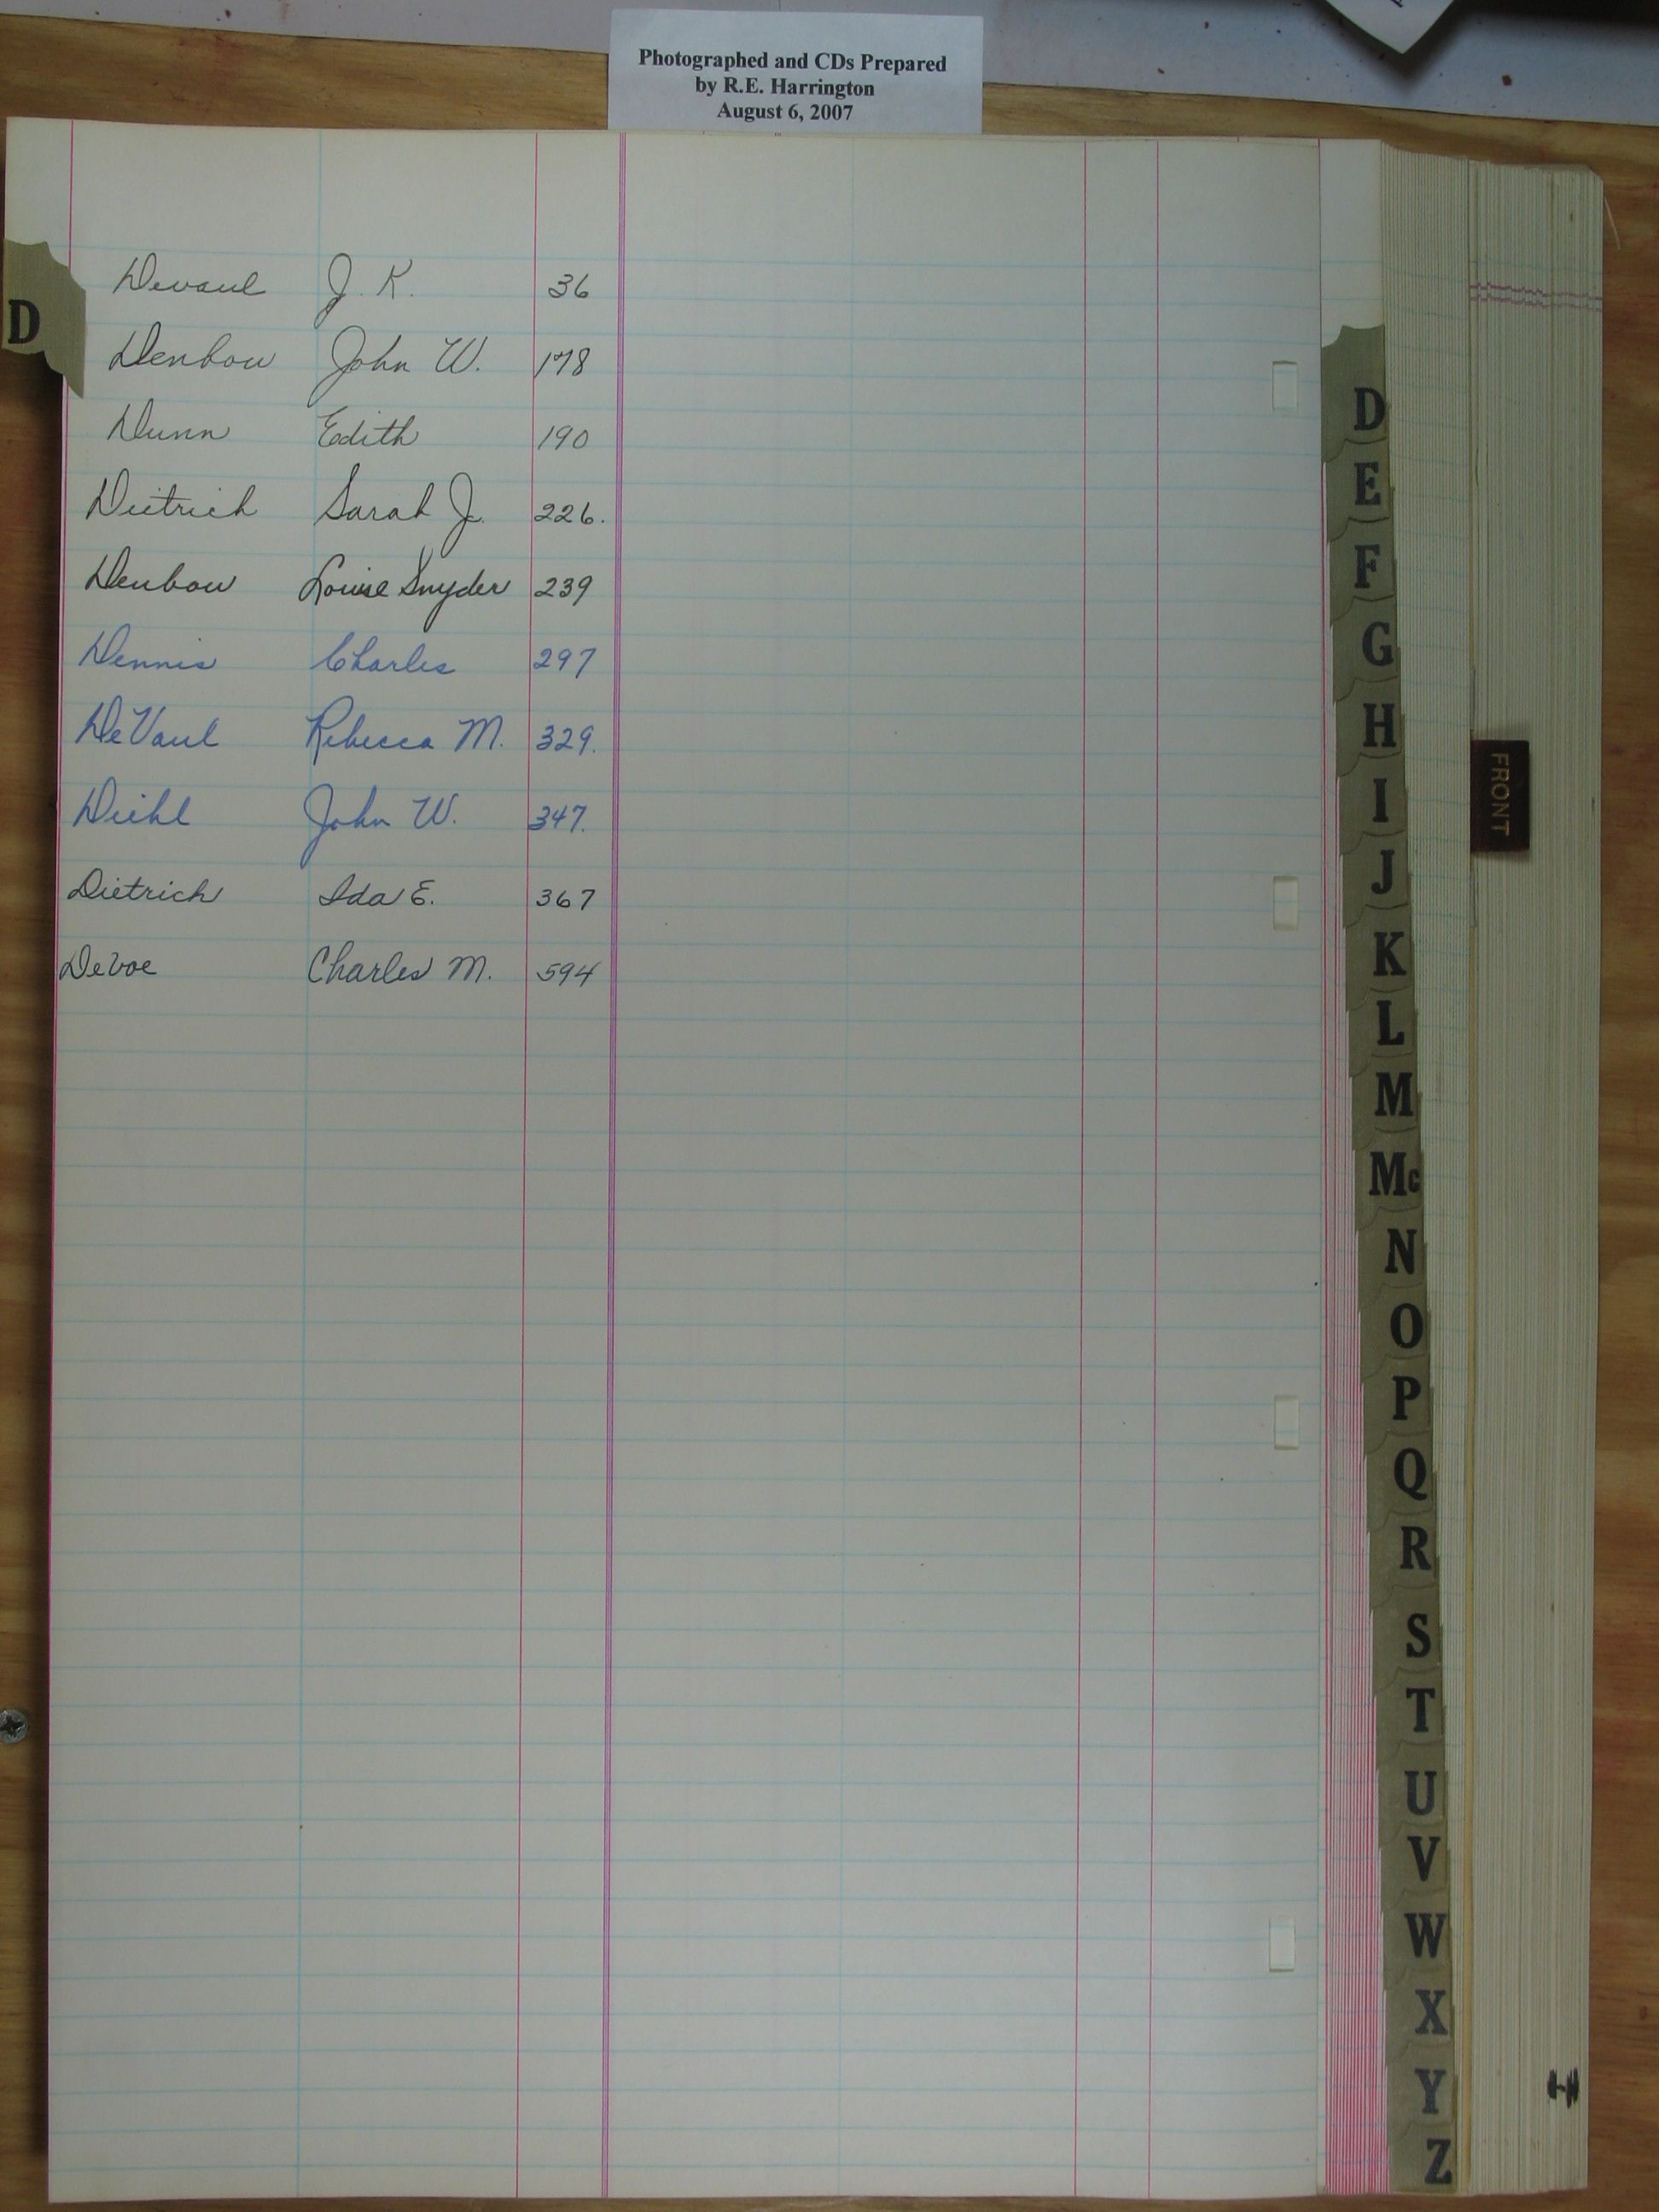 Photographed and CDs Prepared
by R.E. Harrington
August 6, 2007
D
Devaul J. K. 36
Denbow John W. 178
Dunn Edith 190
Dietrich Sarah J. 226.
Denbow Louise Snyder 239
Dennis Charles 297
DeVaul Rebecca M. 329.
Diehl John W. 347.
Dietrich Ida E. 367
DeVoe Charles M. 594
D
E
F
G
H
I
J
K
L
M
Mc
N
O
P
Q
R
S
T
U
V
W
X
Y
Z
FRONT